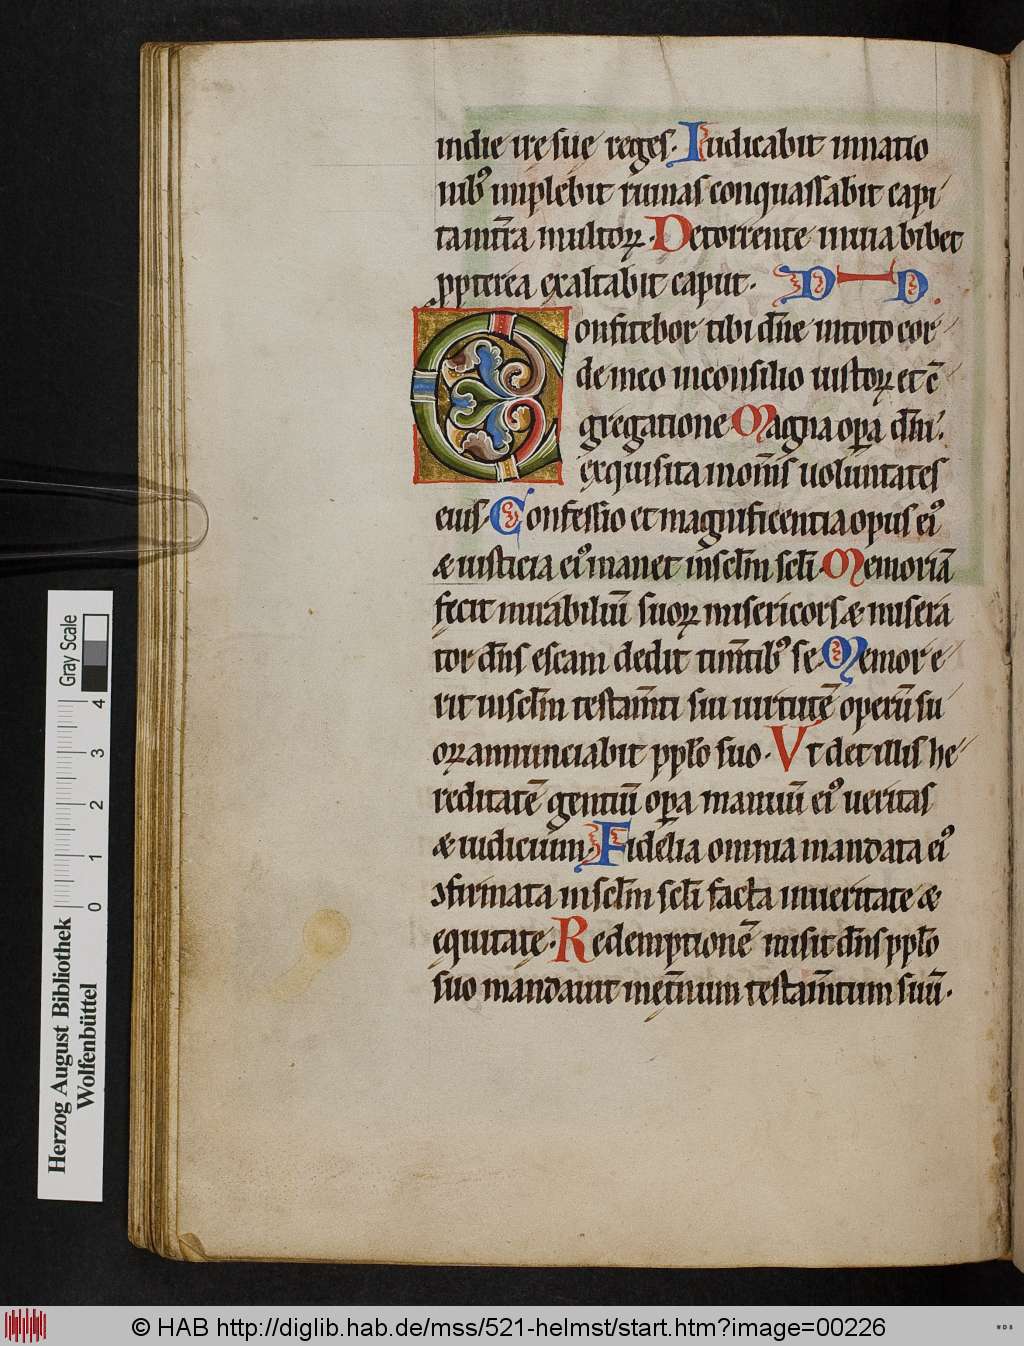 indie ire sue reges. Iudicabit innatio
nib' implebit ruinas conquassabit capi
ta int̄ra multoꝝ. Detorrente inuia bibet
ꝓpterea exaltabit caput. D D
Confitebor tibi dn̄e intoto cor
de meo inconsilio iustoꝝ et ↄ̄
gregatione Magna oꝑa dn̄i.
exquisita inom̄s uoluntates
eius. Confessio et magnificentia opus ei'
& iusticia ei' manet insclm̄ scl̄i. Memoriā
fecit mirabiliū suoꝝ misericors & misera
tor dn̄s escam dedit tim̄tib' se. Memor e
rit insclm̄ testam̄ti sui uirtutē operū su
oꝝ annunciabit ppl̄o suo. Vt det illis he
reditatē gentiū oꝑa manuū ei' ueritas
& iudicium. Fidelia omnia mandata ei'
ↄfirmata insclm̄ scl̄i facta inueritate &
equitate. Redemptionē misit dn̄s ppl̄o
suo mandauit inet̄num testam̄tum suū.
Gray Scale
0 1 2 3 4
Herzog August Bibliothek
Wolfenbüttel
© HAB http://diglib.hab.de/mss/521-helmst/start.htm?image=00226